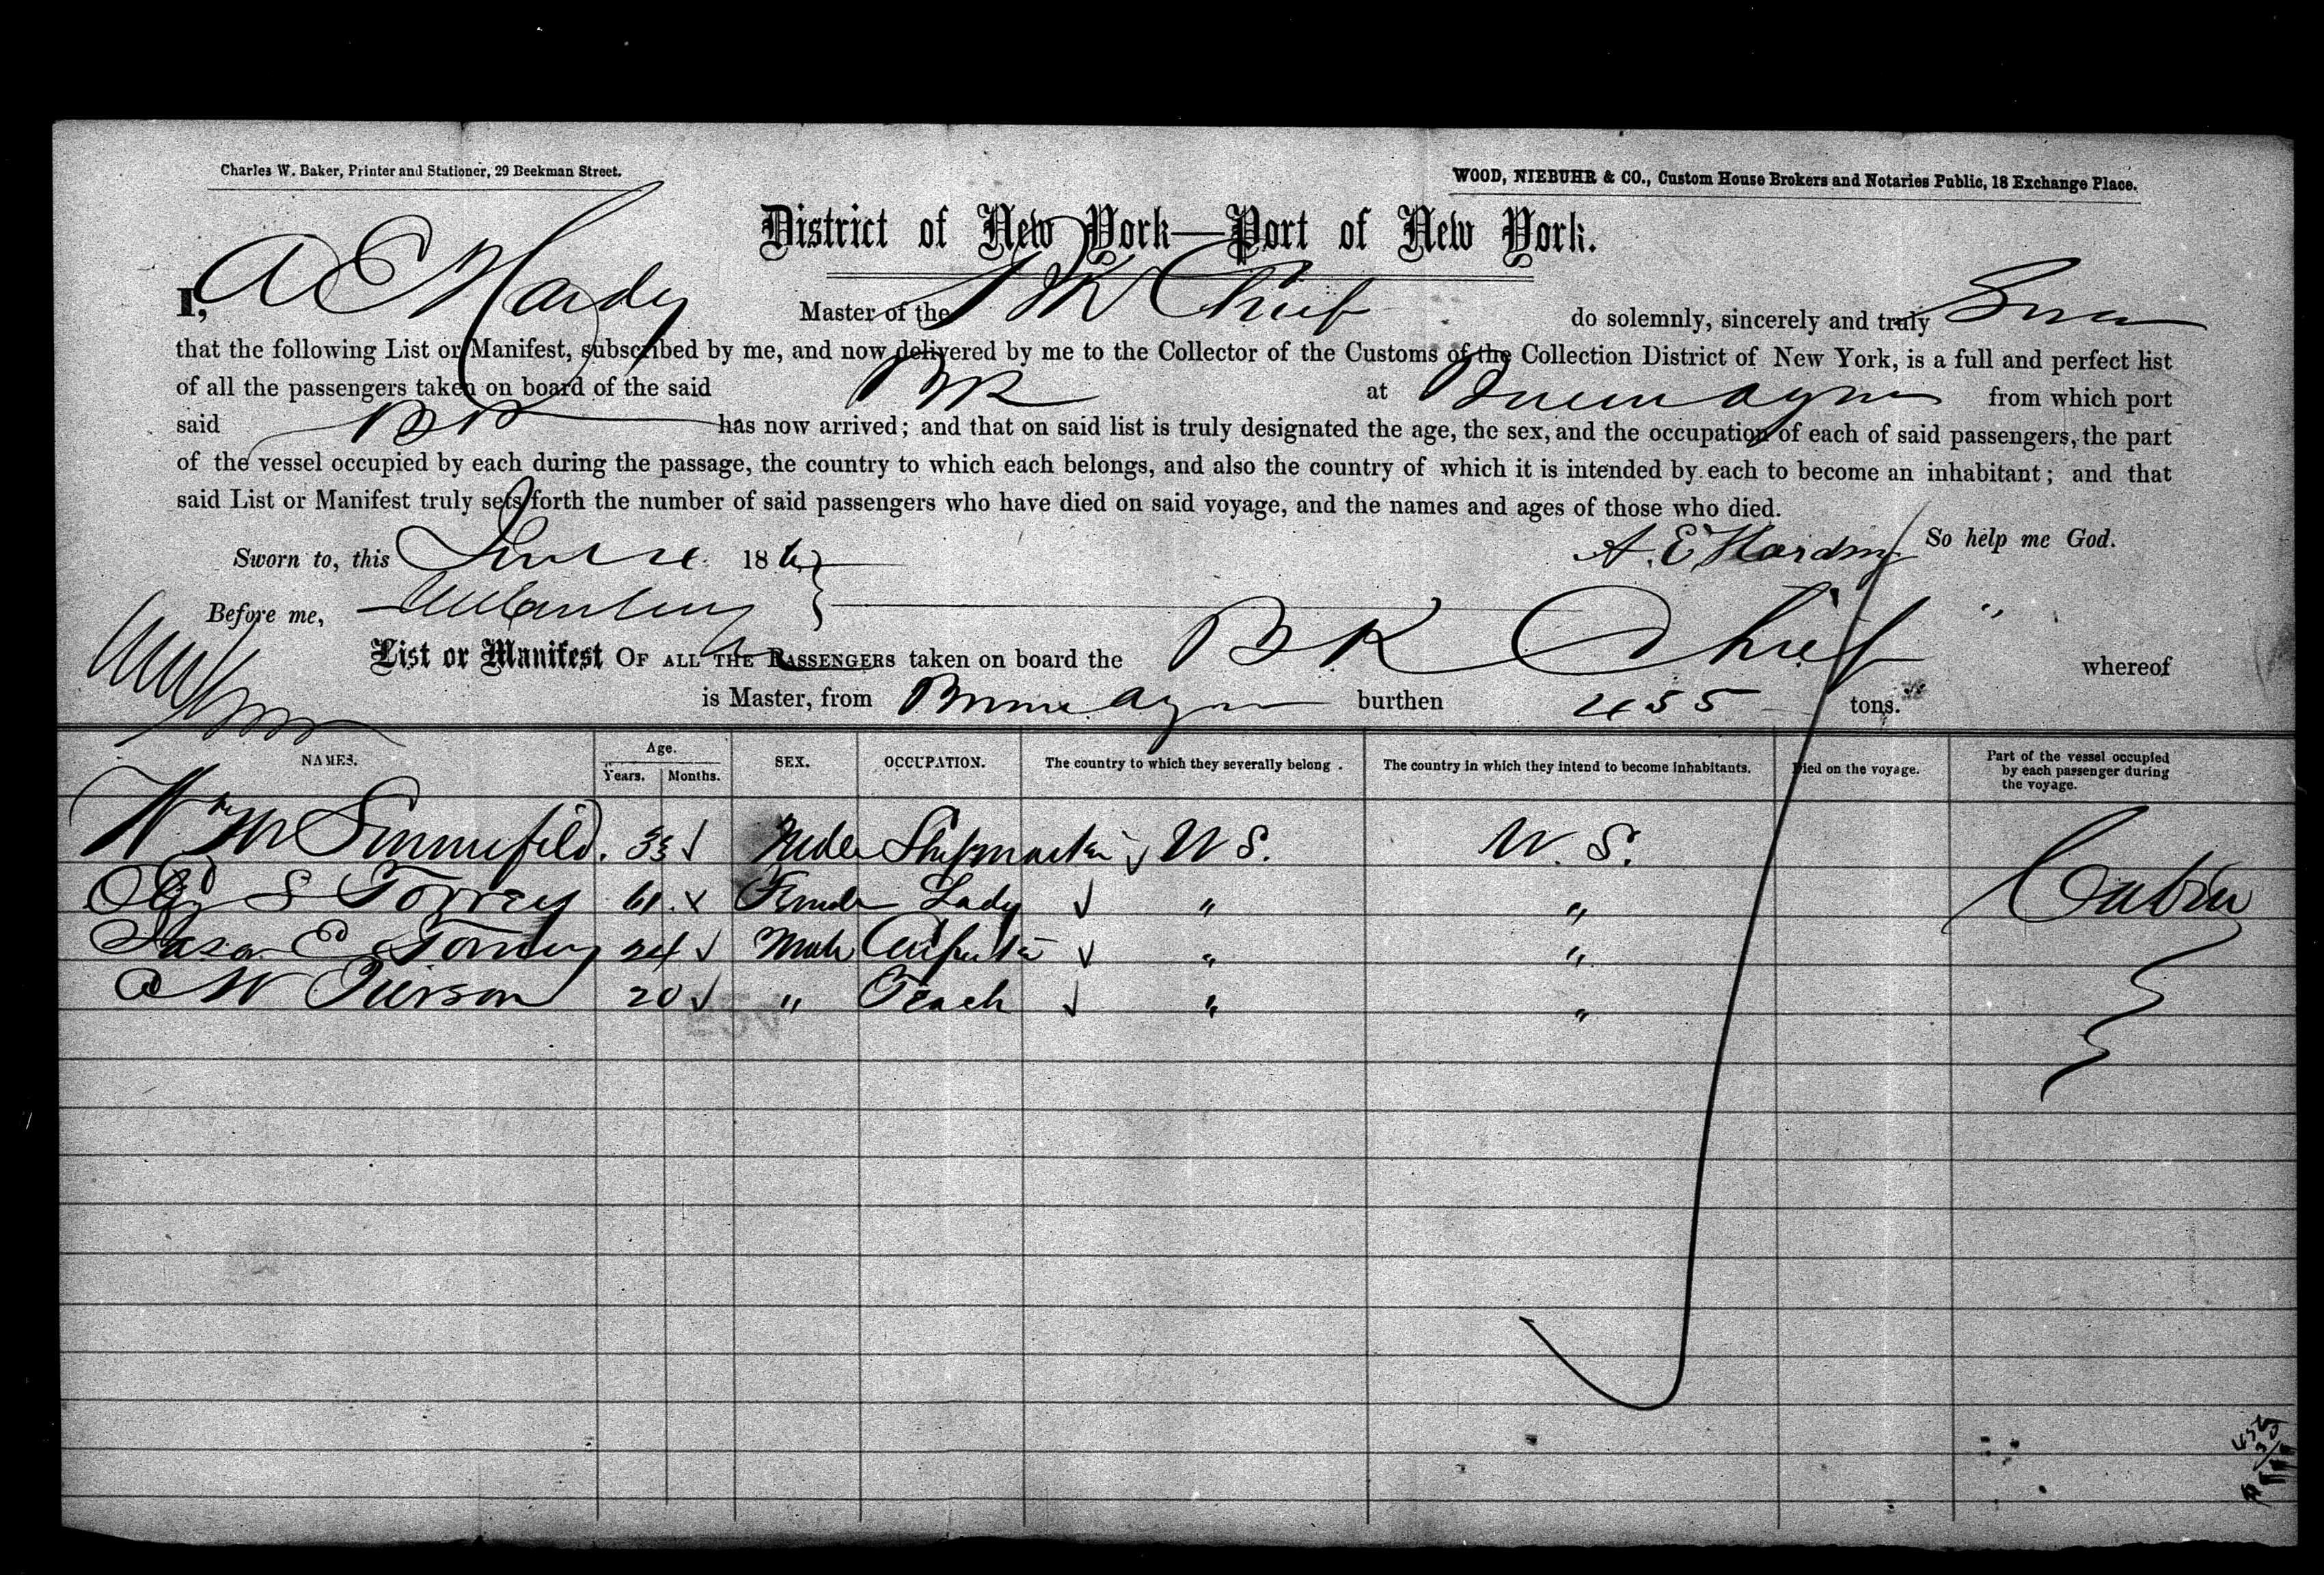 Charles W. Baker, Printer and Stationer, 29 Beekman Street.
WOOD, NIEBUHR & CO., Custom House Brokers and Notaries Public, 18 Exchange Place.
District of New York—Port of New York.
I, A E Hardy Master of the BK Chief do solemnly, sincerely and truly
that the following List or Manifest, subscribed by me, and now delivered by me to the Collector of the Customs of the Collection District of New York, is a full and perfect list
of all the passengers taken on board of the said BK at from which port
said BK has now arrived; and that on said list is truly designated the age, the sex, and the occupation of each of said passengers, the part
of the vessel occupied by each during the passage, the country to which each belongs, and also the country of which it is intended by each to become an inhabitant; and that
said List or Manifest truly sets forth the number of said passengers who have died on said voyage, and the names and ages of those who died.
So help me God.
Sworn to, this 186 A. E Harding
Before me,
List or Manifest OF ALL THE PASSENGERS taken on board the BK Chief whereof
is Master, from burthen 455 tons.
NAMES. Age. Years. Months. SEX. OCCUPATION. The country to which they severally belong. The country in which they intend to become inhabitants. Died on the voyage. Part of the vessel occupied by each passenger during the voyage.
Wm M 33 Male Shipmaster U S. U. S. Cabin
S Torrey 61 Female Lady " "
E Torrey 24 Male " "
W Pierson 20 " Teach " "